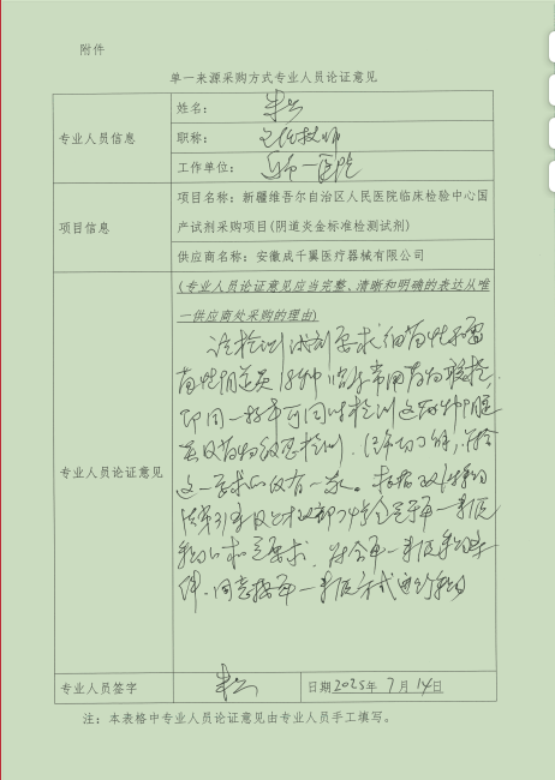 附件
单一来源采购方式专业人员论证意见
专业人员信息
姓名：
职称：主任技师
工作单位：医院
项目信息
项目名称：新疆维吾尔自治区人民医院临床检验中心国
产试剂采购项目(阴道炎金标准检测试剂)
供应商名称：安徽成千翼医疗器械有限公司
专业人员论证意见
(专业人员论证意见应当完整、清晰和明确的表达从唯
一供应商处采购的理由)
该检测试剂要求细菌性和霉
菌性阴道炎18种临床常用药物
即同一标本可同时检测这
炎及药物敏感检测
这一要求的仅有一家。根据政府采购
法第31条及财政部74号令关于单一来源
采购的相关要求，符合单一来源采购条
件，同意按单一来源方式进行采购
专业人员签字
日期2025年7月14日
注：本表格中专业人员论证意见由专业人员手工填写。